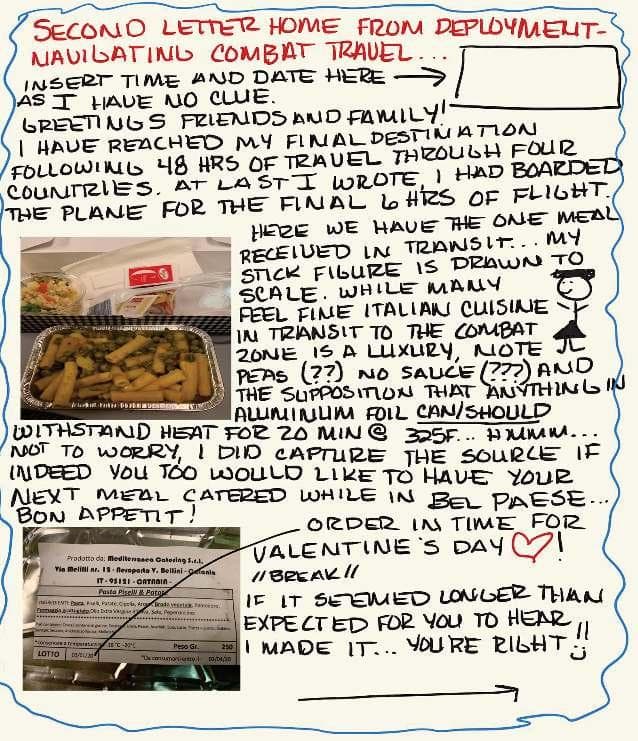 SECOND LETTER HOME FROM DEPLOYMENT-
NAVIGATING COMBAT TRAVEL...
INSERT TIME AND DATE HERE
AS I HAVE NO CLUE.
GREETINGS FRIENDS AND FAMILY!
I HAVE REACHED MY FINAL DESTINATION
FOLLOWING 48 HRS OF TRAVEL THROUGH FOUR
COUNTRIES. AT LAST I WROTE, I HAD BOARDED
THE PLANE FOR THE FINAL 6 HRS OF FLIGHT.
HERE WE HAVE THE ONE MEAL
RECEIVED IN TRANSIT... MY
STICK FIGURE IS DRAWN TO
SCALE. WHILE MANY
FEEL FINE ITALIAN CUISINE
IN TRANSIT TO THE COMBAT
ZONE IS A LUXURY, NOTE
PEAS (??) NO SAUCE (???) AND
THE SUPPOSITION THAT ANYTHING IN
ALUMINIUM FOIL CAN/SHOULD
WITHSTAND HEAT FOR 20 MIN @ 325F... HMMM...
NOT TO WORRY, I DID CAPTURE THE SOURCE IF
INDEED YOU TOO WOULD LIKE TO HAVE YOUR
NEXT MEAL CATERED WHILE IN BEL PAESE...
BON APPETIT!
ORDER IN TIME FOR
VALENTINE'S DAY !
//BREAK//
IF IT SEEMED LONGER THAN
EXPECTED FOR YOU TO HEAR
I MADE IT... YOU'RE RIGHT!!
Prodotto da: Mediterranea Catering S.r.l.
Via Melilli nr. 12 - Aeroporto V. Bellini - Catania
IT - 95121 - CATANIA -
Pasta Piselli & Patate
Peso Gr. 250
LOTTO 02/01/20